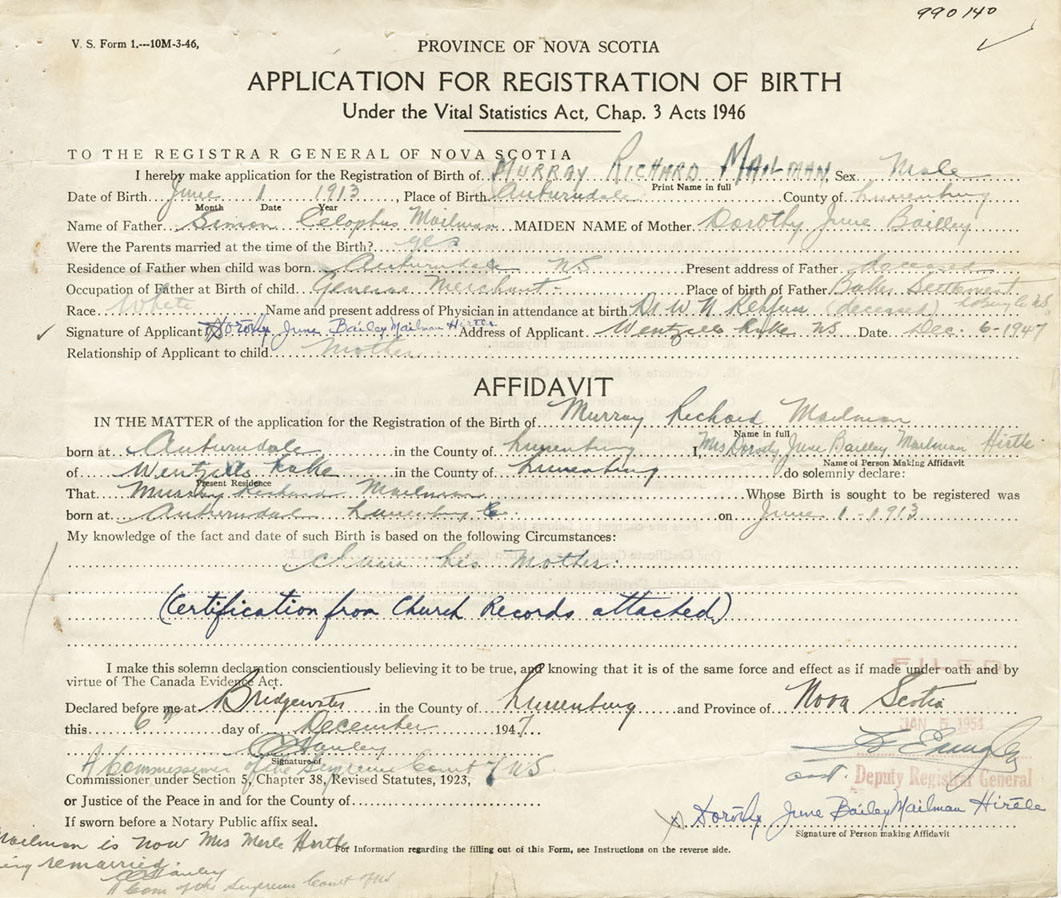 990140
V. S. Form 1.---10M-3-46,
PROVINCE OF NOVA SCOTIA
APPLICATION FOR REGISTRATION OF BIRTH
Under the Vital Statistics Act, Chap. 3 Acts 1946
TO THE REGISTRAR GENERAL OF NOVA SCOTIA
I hereby make application for the Registration of Birth of MURRAY RICHARD MAILMAN Sex Male
Print Name in full
Date of Birth June 1 1913, Place of Birth Auburndale County of Lunenburg
Month Date Year
Name of Father Simon Celophus Mailman MAIDEN NAME of Mother Dorothy June Bailley
Were the Parents married at the time of the Birth? yes
Residence of Father when child was born Auburndale NS Present address of Father deceased
Occupation of Father at Birth of child General Merchant Place of birth of Father Settlement
Race White Name and present address of Physician in attendance at birth Dr W N (deceased)
Signature of Applicant Dorothy June Bailey Mailman Hirtle Address of Applicant Wentzells Lake NS Date Dec. 6-1947
Relationship of Applicant to child Mother
AFFIDAVIT
IN THE MATTER of the application for the Registration of the Birth of Murray Richard Mailman
Name in full
born at Auburndale in the County of Lunenburg I, Mrs Dorothy June Bailley Mailman Hirtle
Name of Person Making Affidavit
of Wentzells Lake in the County of Lunenburg do solemnly declare:
Present Residence
That Murray Richard Mailman Whose Birth is sought to be registered was
born at Auburndale Lunenburg Co. on June 1-1913
My knowledge of the fact and date of such Birth is based on the following Circumstances:
his Mother.
(Certification from Church Records attached)
I make this solemn declaration conscientiously believing it to be true, and knowing that it is of the same force and effect as if made under oath and by
virtue of The Canada Evidence Act.
FILED
Declared before me at Bridgewater in the County of Lunenburg and Province of Nova Scotia
this 6th day of December 1947
JAN 5 1954
Signature of
A Commissioner of the Supreme Court of NS
Commissioner under Section 5, Chapter 38, Revised Statutes, 1923,
Deputy Registrar General
or Justice of the Peace in and for the County of
Dorothy June Bailey Mailman Hirtle
Signature of Person making Affidavit
If sworn before a Notary Public affix seal.
Mailman is now Mrs Merle Hirtle
For Information regarding the filling out of this Form, see Instructions on the reverse side.
remarried.
A Com of the Supreme Court of NS